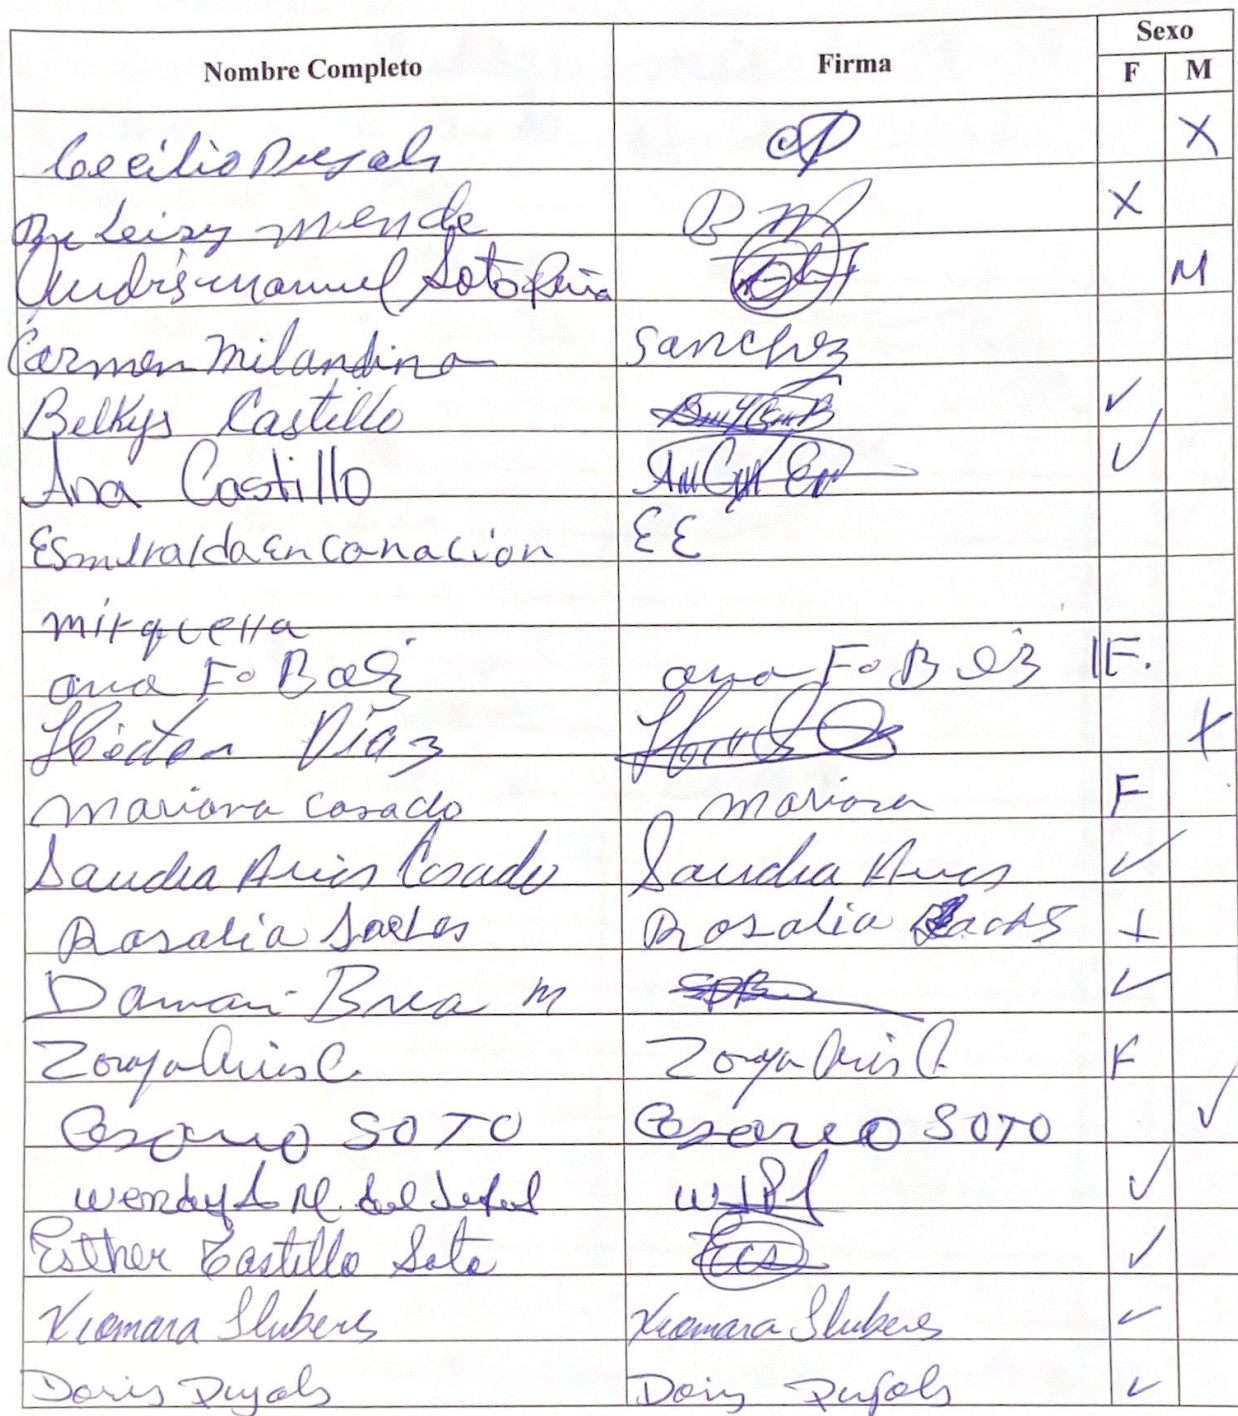 Nombre Completo Firma Sexo
F M
Cecilio Pujols CP X
Mende B M X
Andrés Manuel Soto Peña M
Carmen Milandina Sanchez
Belkys Castillo ✓
Ana Castillo ✓
Esmeralda Encanacion EE
Mirquella
ana F. Baez ana F. Baez F.
Hector Díaz X
Mariana Casado Mariana F
Sandra Arias Casado Sandra Arias ✓
Rosalia Rosalia X
Damari Brea M ✓
Zoraya Arias C. Zoraya Arias C. F
Cesareo SOTO Cesareo SOTO ✓
Wendy M. del ✓
Esther Castillo Soto ECS ✓
Xiomara Xiomara ✓
Doris Pujols Doris Pujols ✓